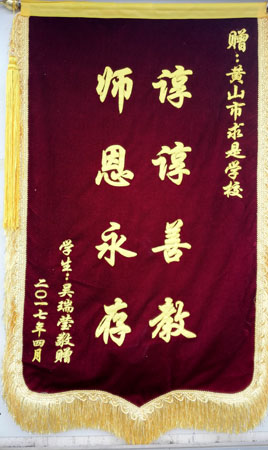 赠：黄山市求是学校
谆谆善教
师恩永存
学生：吴瑞莹敬赠
二〇一七年四月